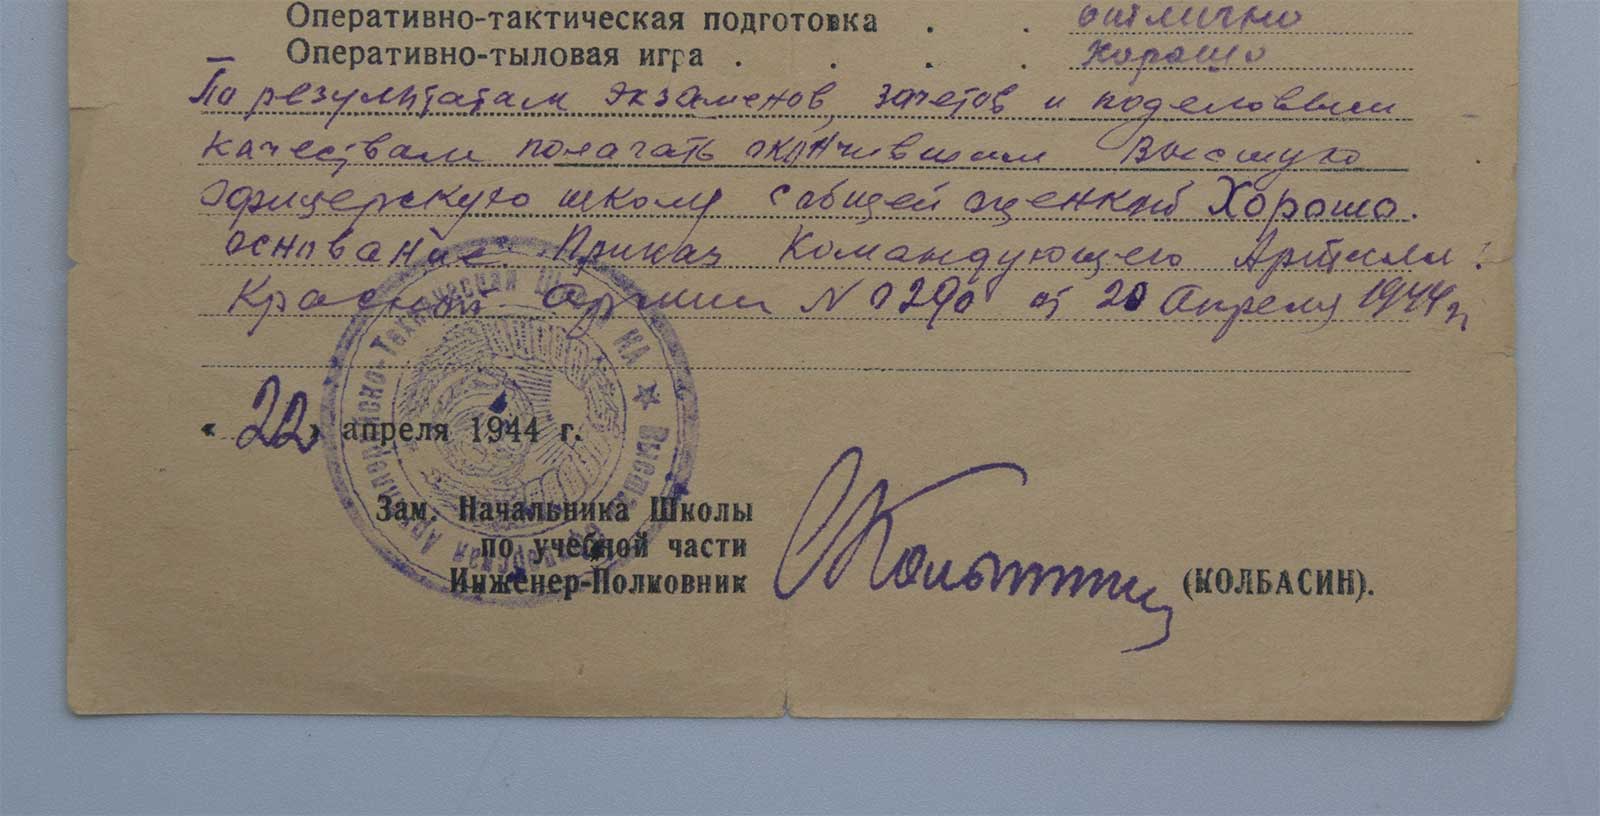 Оперативно-тактическая подготовка . . отлично
Оперативно-тыловая игра . . . . хорошо
По результатам экзаменов, зачетов и поделовым
качествам полагать окончившим Высшую
офицерскую школу с общей оценкой Хорошо.
основание: Приказ Командующего Артилл.
Красной Армии № 0290 от 20 Апреля 1944 г
«22» апреля 1944 г.
Зам. Начальника Школы
по учебной части
Инженер-Полковник (КОЛБАСИН).
Высшая Офицерская Артиллерийско-Техническая Школа КА